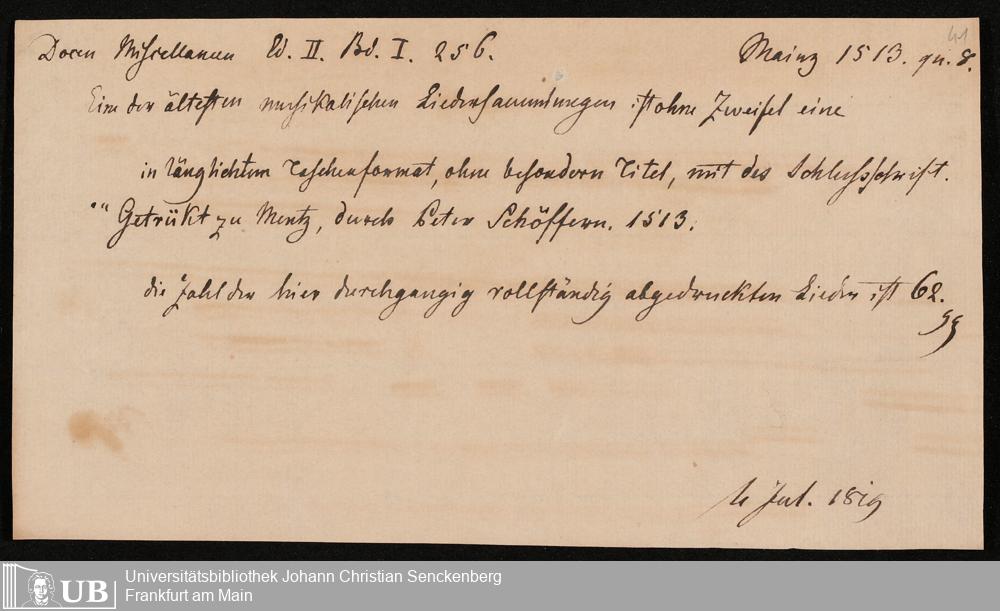 41
Docen Miscellaneen Ed. II. Bd. I. 256. Mainz 1513. qu. 8.
Eine der ältesten musikalischen Liedersammlungen ist ohne Zweifel eine
in länglichtem Taschenformat, ohne besondern Titel, mit der Schlussschrift.
" Getrükt zu Mentz, durch Peter Schöffern. 1513.
die Zahl der hier durchgangig vollständig abgedruckten Lieder ist 62.
Jul. 1819
UB Universitätsbibliothek Johann Christian Senckenberg
Frankfurt am Main